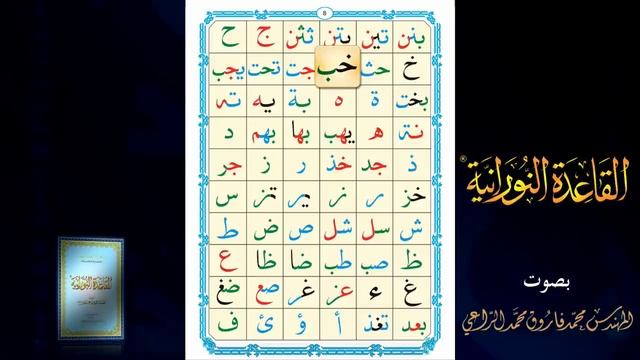 8
بنن تين يتن نثن ج ح
خ حث خب جت تحت يجب
بخت ة ه بة يه ته
نة ه يهب بها بهم د
ذ جد خذ ر ز جر
خز ر ز ير تز س
ش سل شل ص ض ط
ظ صب طب ضا ظا ع
غ ء عز غر صع ضغ
بعد تغذ أ ؤ ئ ف
القاعدة النورانية
بصوت
المهندس محمد فاروق محمد الراعي
القاعدة النورانية